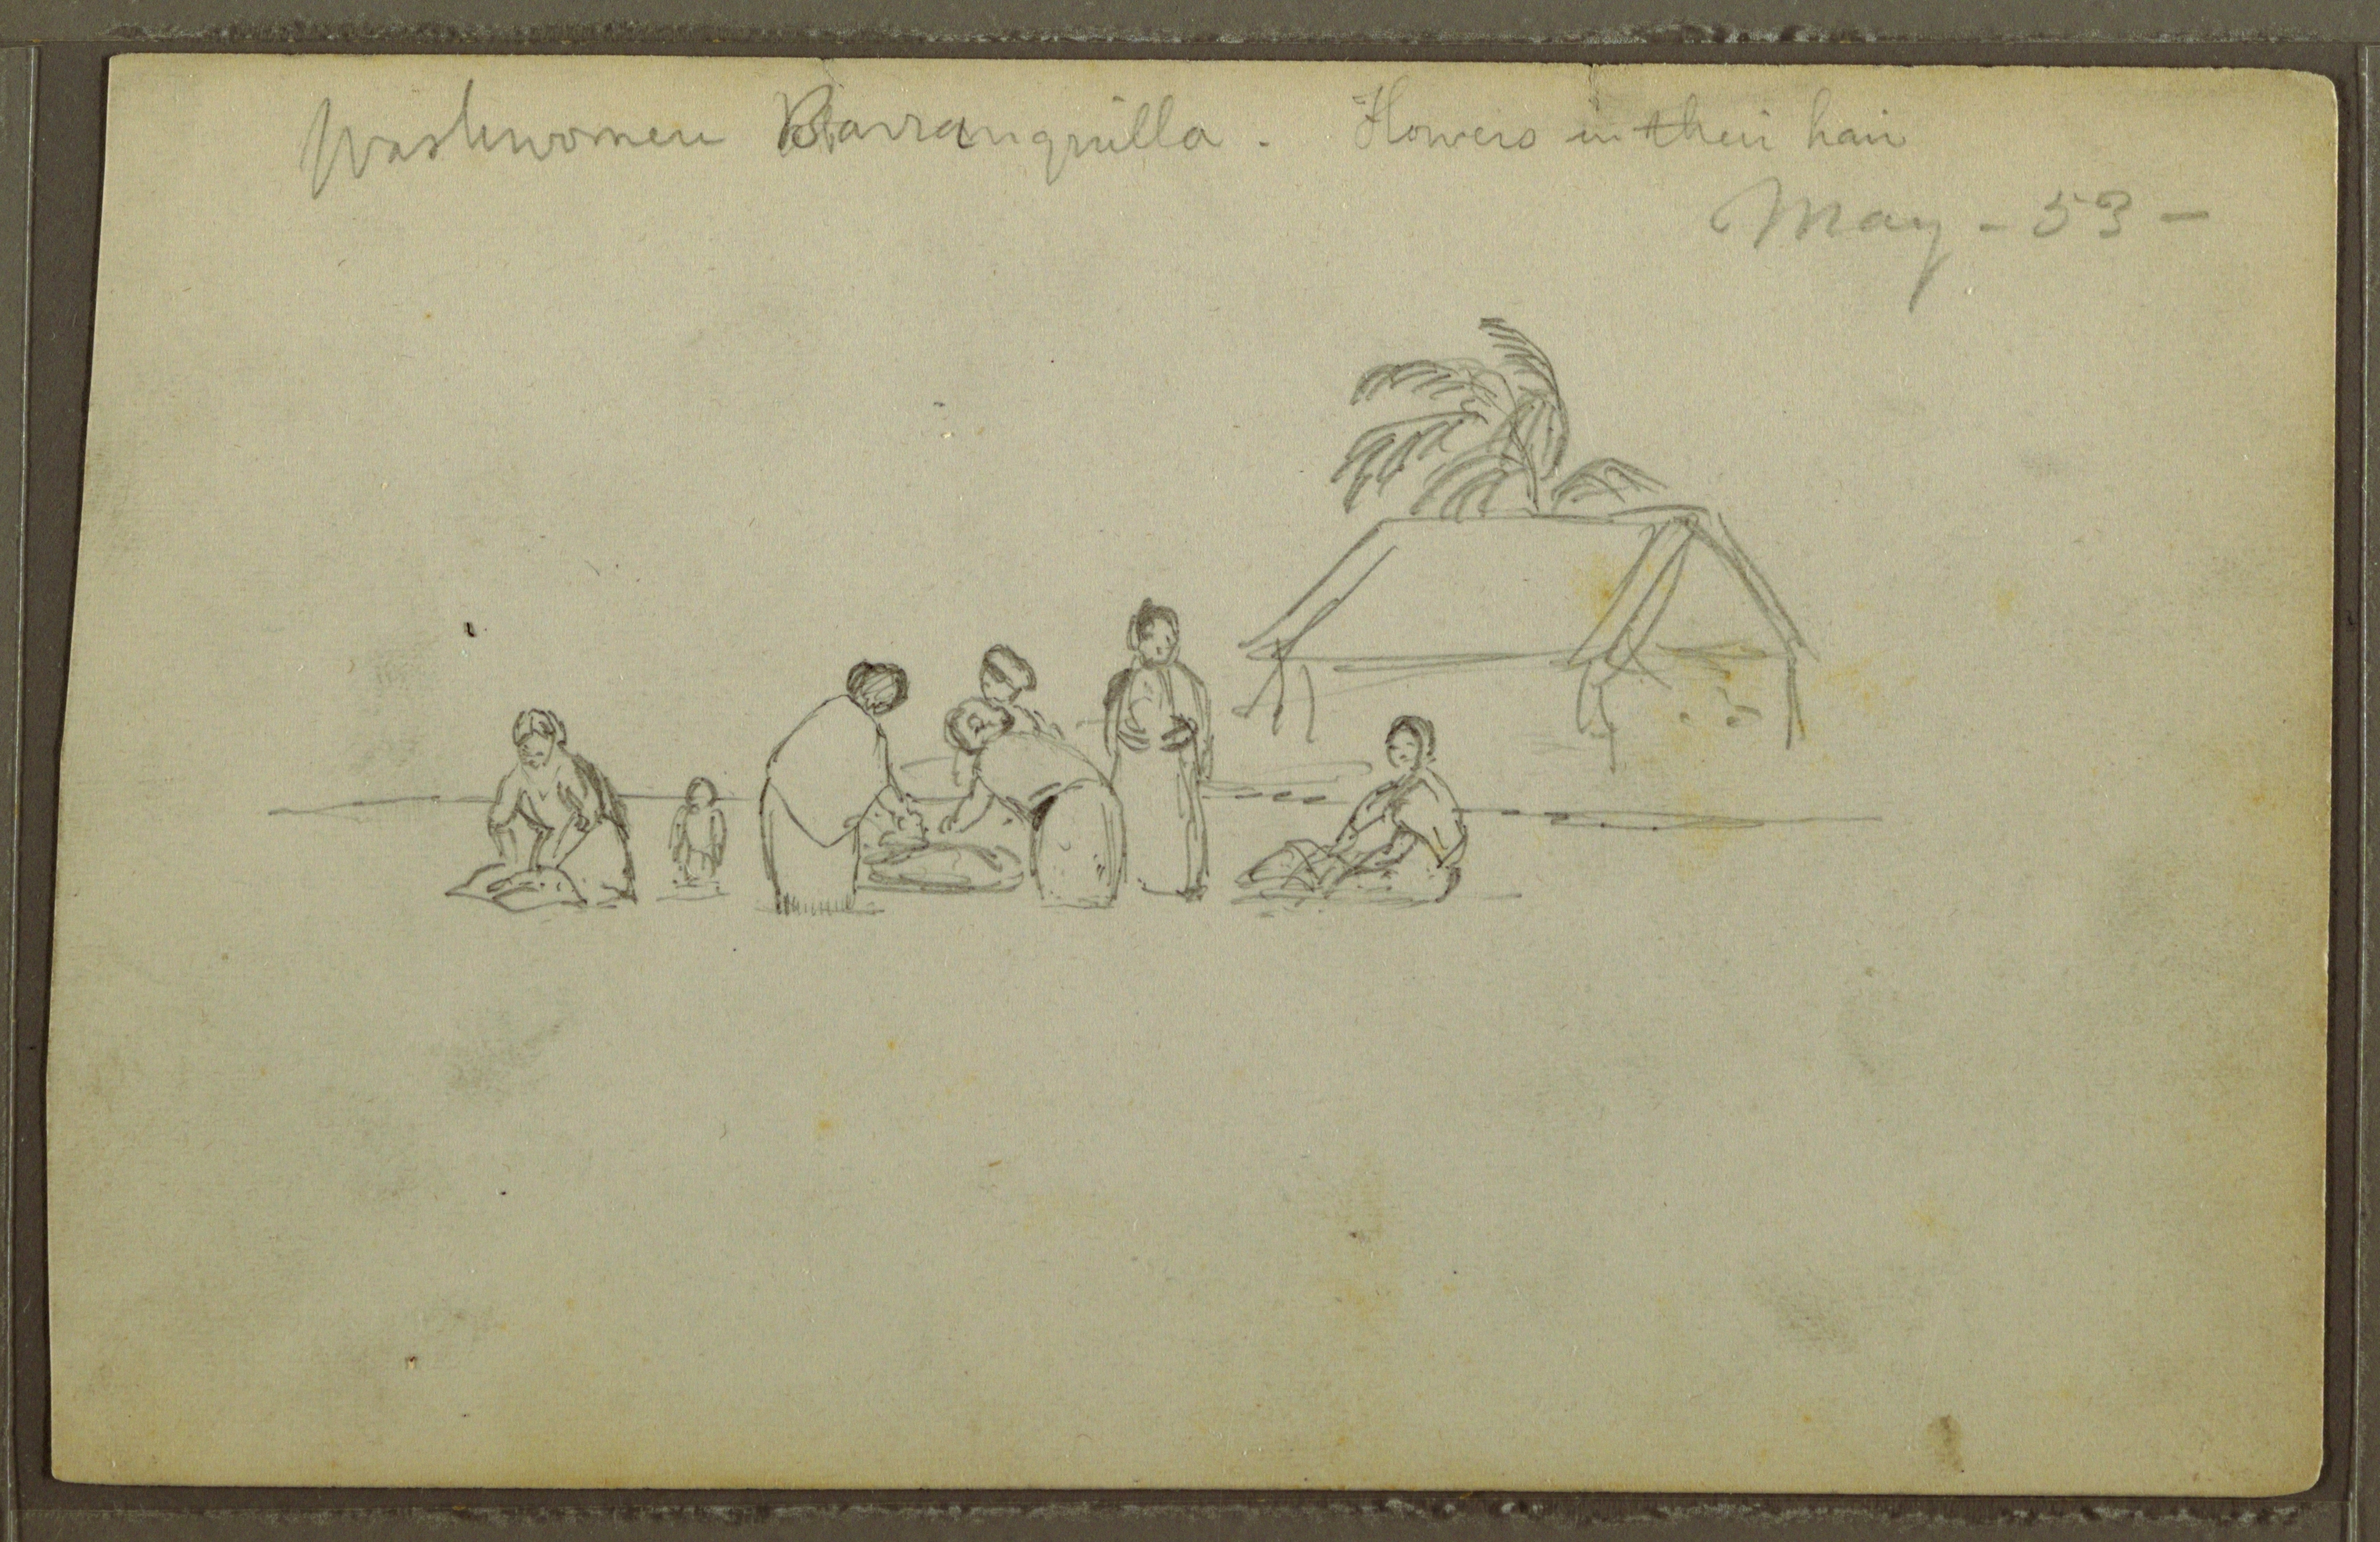 Washwomen Barranquilla. Flowers in their hair
May - 53 -